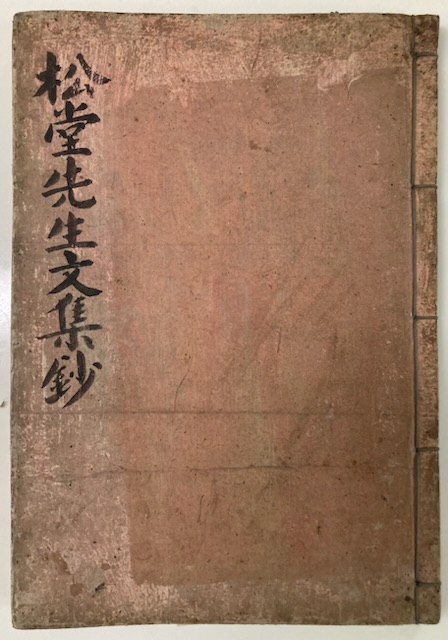 松堂先生文集鈔